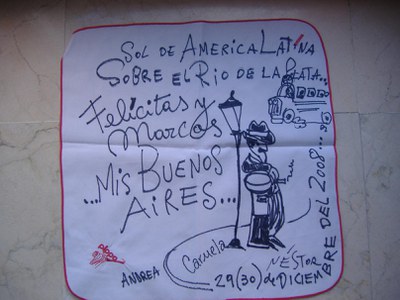 SOL DE AMERICA LATINA
SOBRE EL RIO DE LA PLATA...
Felicitas y
Marcos
...MIS BUENOS
AIRES...
ANDREA
Caruela
NÉSTOR
29(30) de DICIEMBRE DEL 2008...